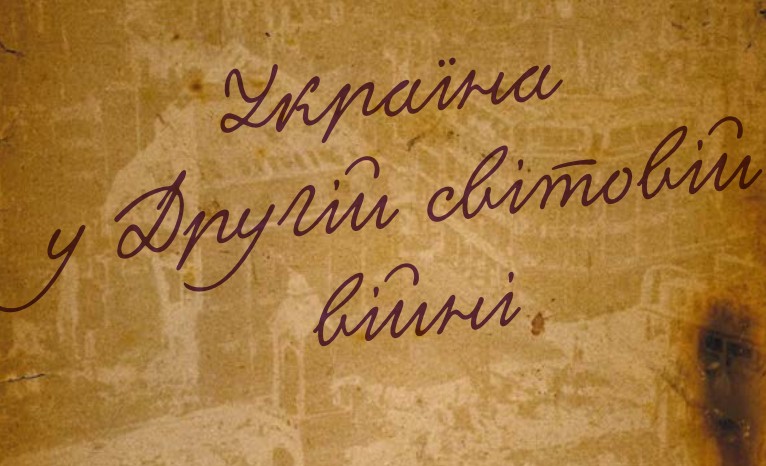 Україна
у Другій світовій
війні